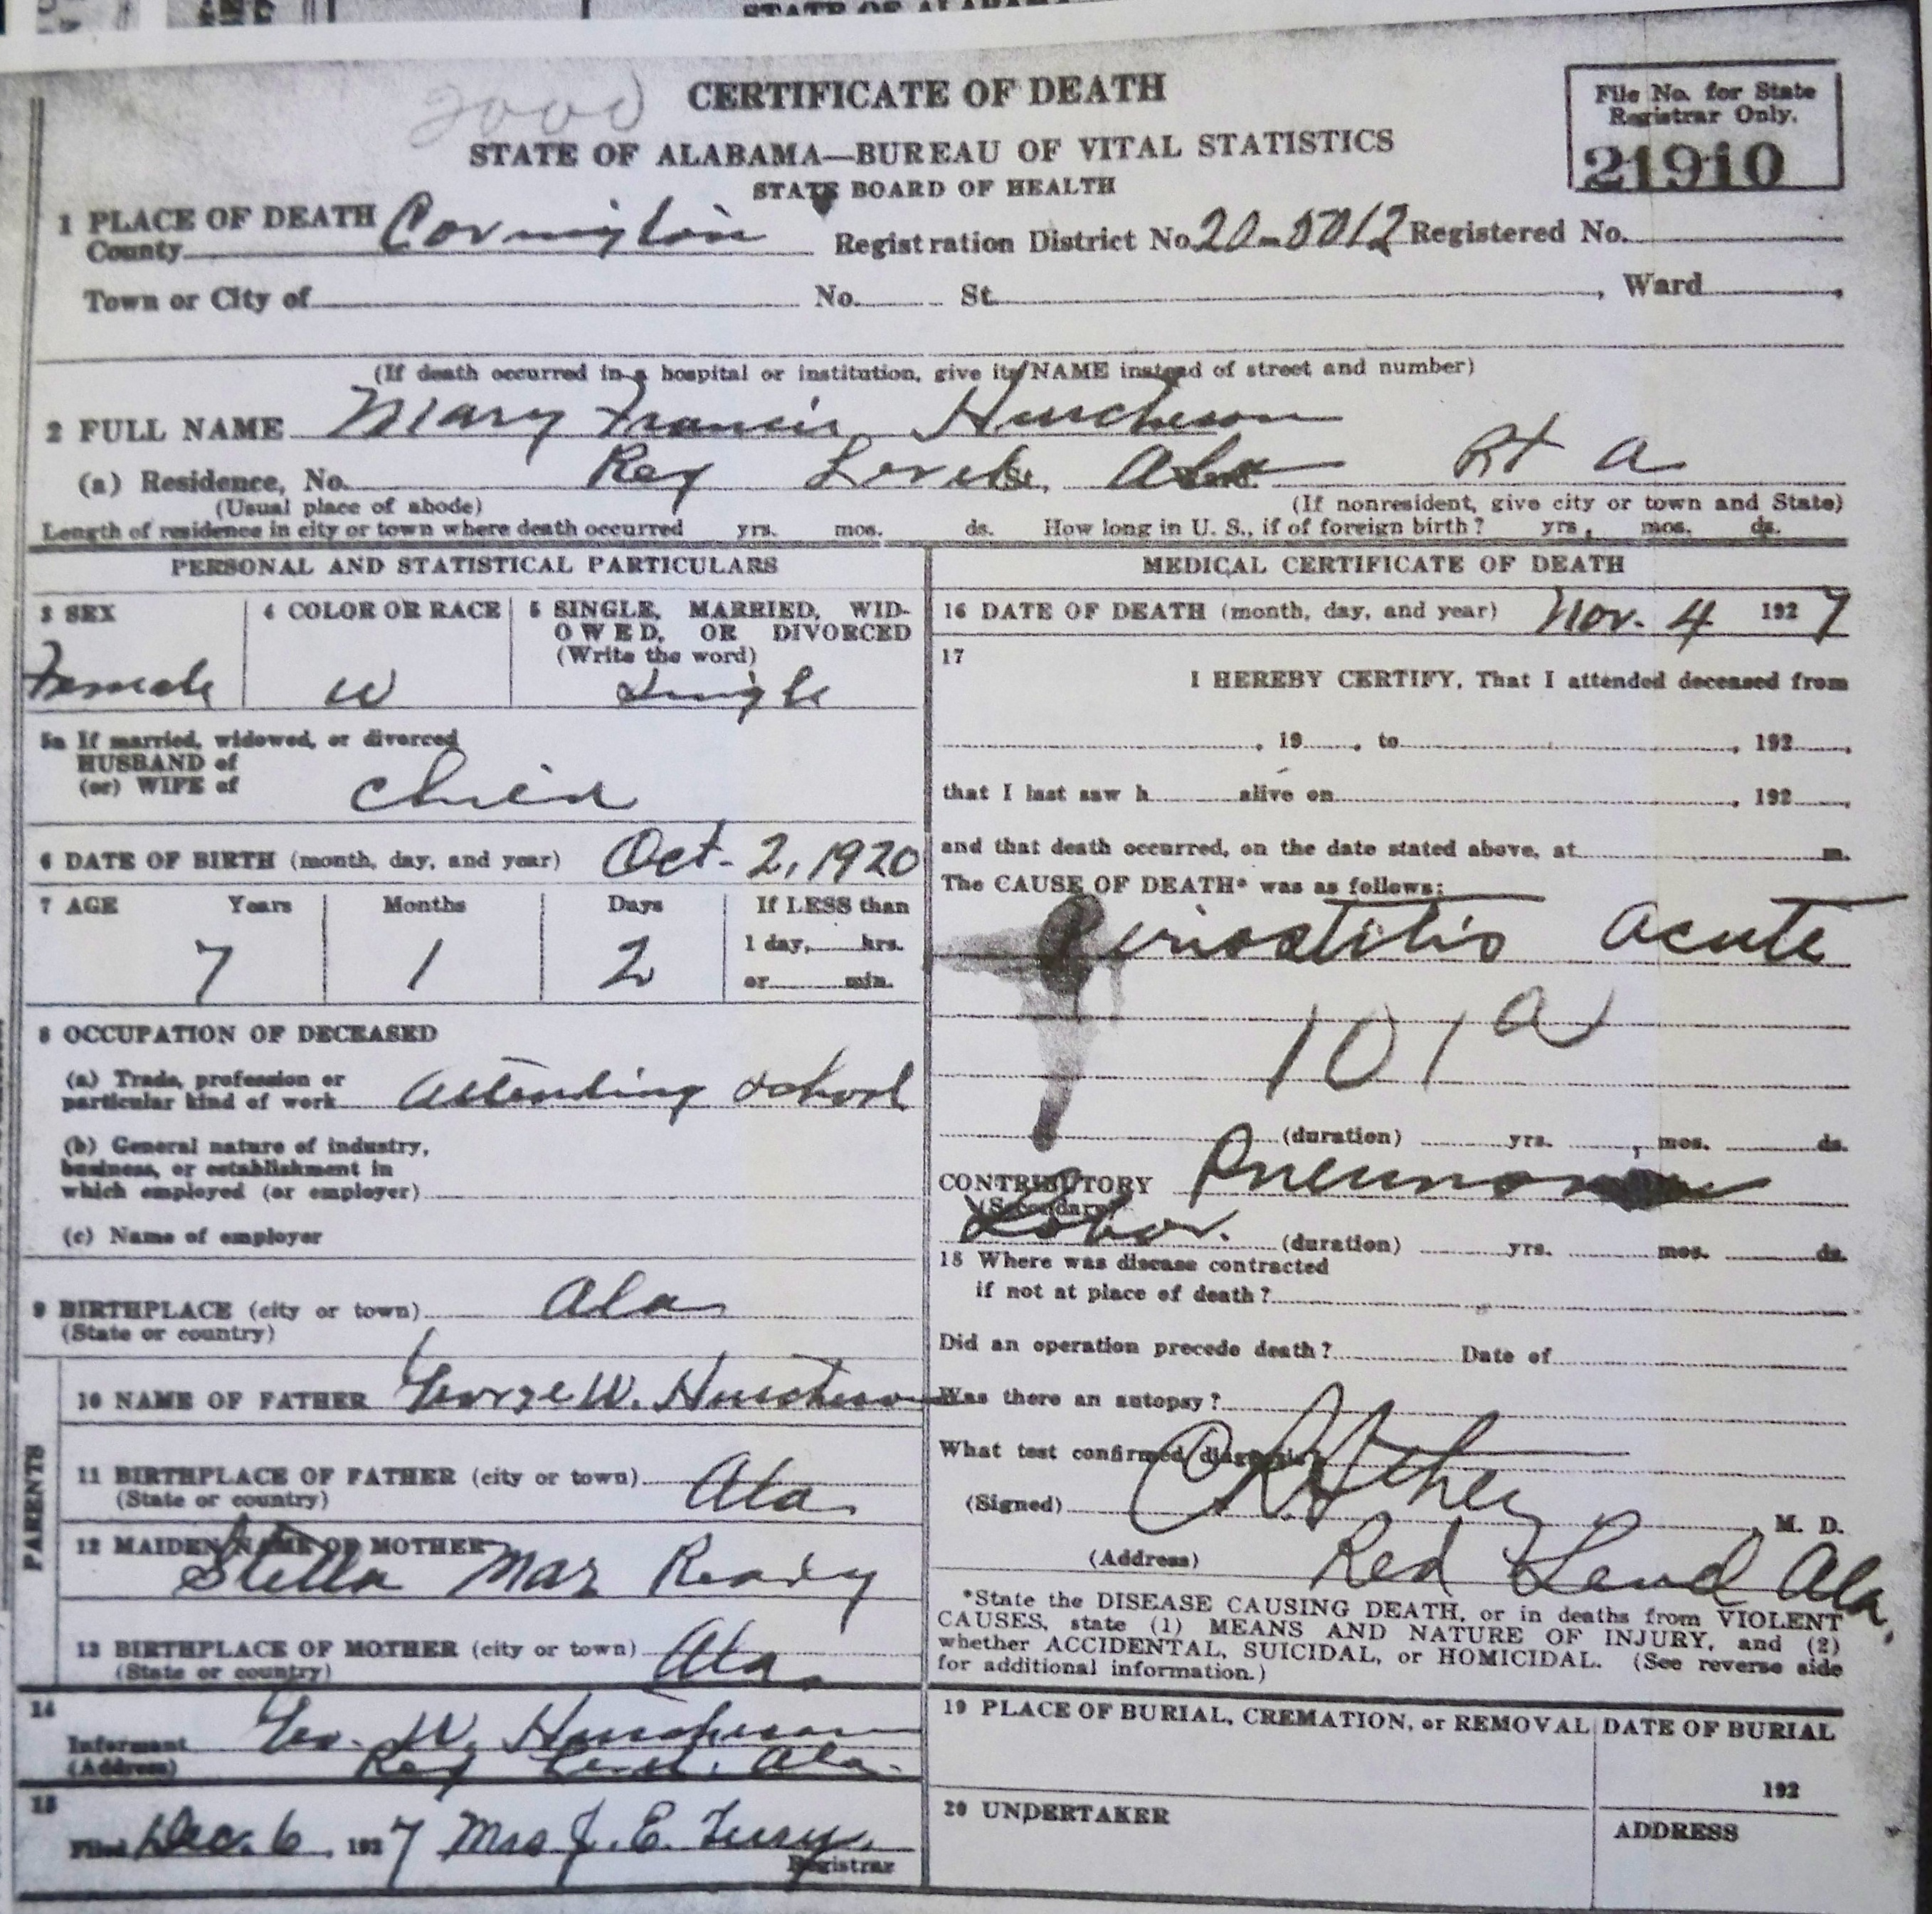 CERTIFICATE OF DEATH
STATE OF ALABAMA—BUREAU OF VITAL STATISTICS
STATE BOARD OF HEALTH
File No. for State
Registrar Only.
21910
good
1 PLACE OF DEATH
County Covington Registration District No. 20-5012 Registered No.
Town or City of No. St. , Ward ,
(If death occurred in a hospital or institution, give its NAME instead of street and number)
2 FULL NAME Mary Francis Hutcheson
(a) Residence, No. Ala Rt a
(Usual place of abode) (If nonresident, give city or town and State)
Length of residence in city or town where death occurred yrs. mos. ds. How long in U. S., if of foreign birth? yrs, mos. ds.
PERSONAL AND STATISTICAL PARTICULARS
3 SEX
Female
4 COLOR OR RACE
W
5 SINGLE, MARRIED, WID-
OWED, OR DIVORCED
(Write the word)
Single
5a If married, widowed, or divorced
HUSBAND of
(or) WIFE of
child
6 DATE OF BIRTH (month, day, and year) Oct- 2, 1920
7 AGE Years Months Days If LESS than
1 day, hrs.
or min.
7 1 2
8 OCCUPATION OF DECEASED
(a) Trade, profession or
particular kind of work attending school
(b) General nature of industry,
business, or establishment in
which employed (or employer)
(c) Name of employer
9 BIRTHPLACE (city or town) Ala
(State or country)
PARENTS
10 NAME OF FATHER George W. Hutcheson
11 BIRTHPLACE OF FATHER (city or town) Ala.
(State or country)
12 MAIDEN NAME OF MOTHER
Stella May
13 BIRTHPLACE OF MOTHER (city or town) Ala.
(State or country)
14
Informant Geo. W. Hutcheson
(Address) Ala.
15
Filed Dec. 6, 1927 Mrs J. E.
Registrar
MEDICAL CERTIFICATE OF DEATH
16 DATE OF DEATH (month, day, and year) Nov. 4 1927
17
I HEREBY CERTIFY, That I attended deceased from
, 19 , to , 192 ,
that I last saw h alive on , 192 ,
and that death occurred, on the date stated above, at m.
The CAUSE OF DEATH* was as follows:
Periostitis acute
101a
(duration) yrs. , mos. ds.
CONTRIBUTORY Pneumonia
(Secondary)
Lobar. (duration) yrs. mos. ds.
18 Where was disease contracted
if not at place of death?
Did an operation precede death? Date of
Was there an autopsy?
What test confirmed diagnosis?
(Signed) M. D.
(Address) Red Ala.
*State the DISEASE CAUSING DEATH, or in deaths from VIOLENT
CAUSES, state (1) MEANS AND NATURE OF INJURY, and (2)
whether ACCIDENTAL, SUICIDAL, or HOMICIDAL. (See reverse side
for additional information.)
19 PLACE OF BURIAL, CREMATION, or REMOVAL
DATE OF BURIAL
192
20 UNDERTAKER
ADDRESS